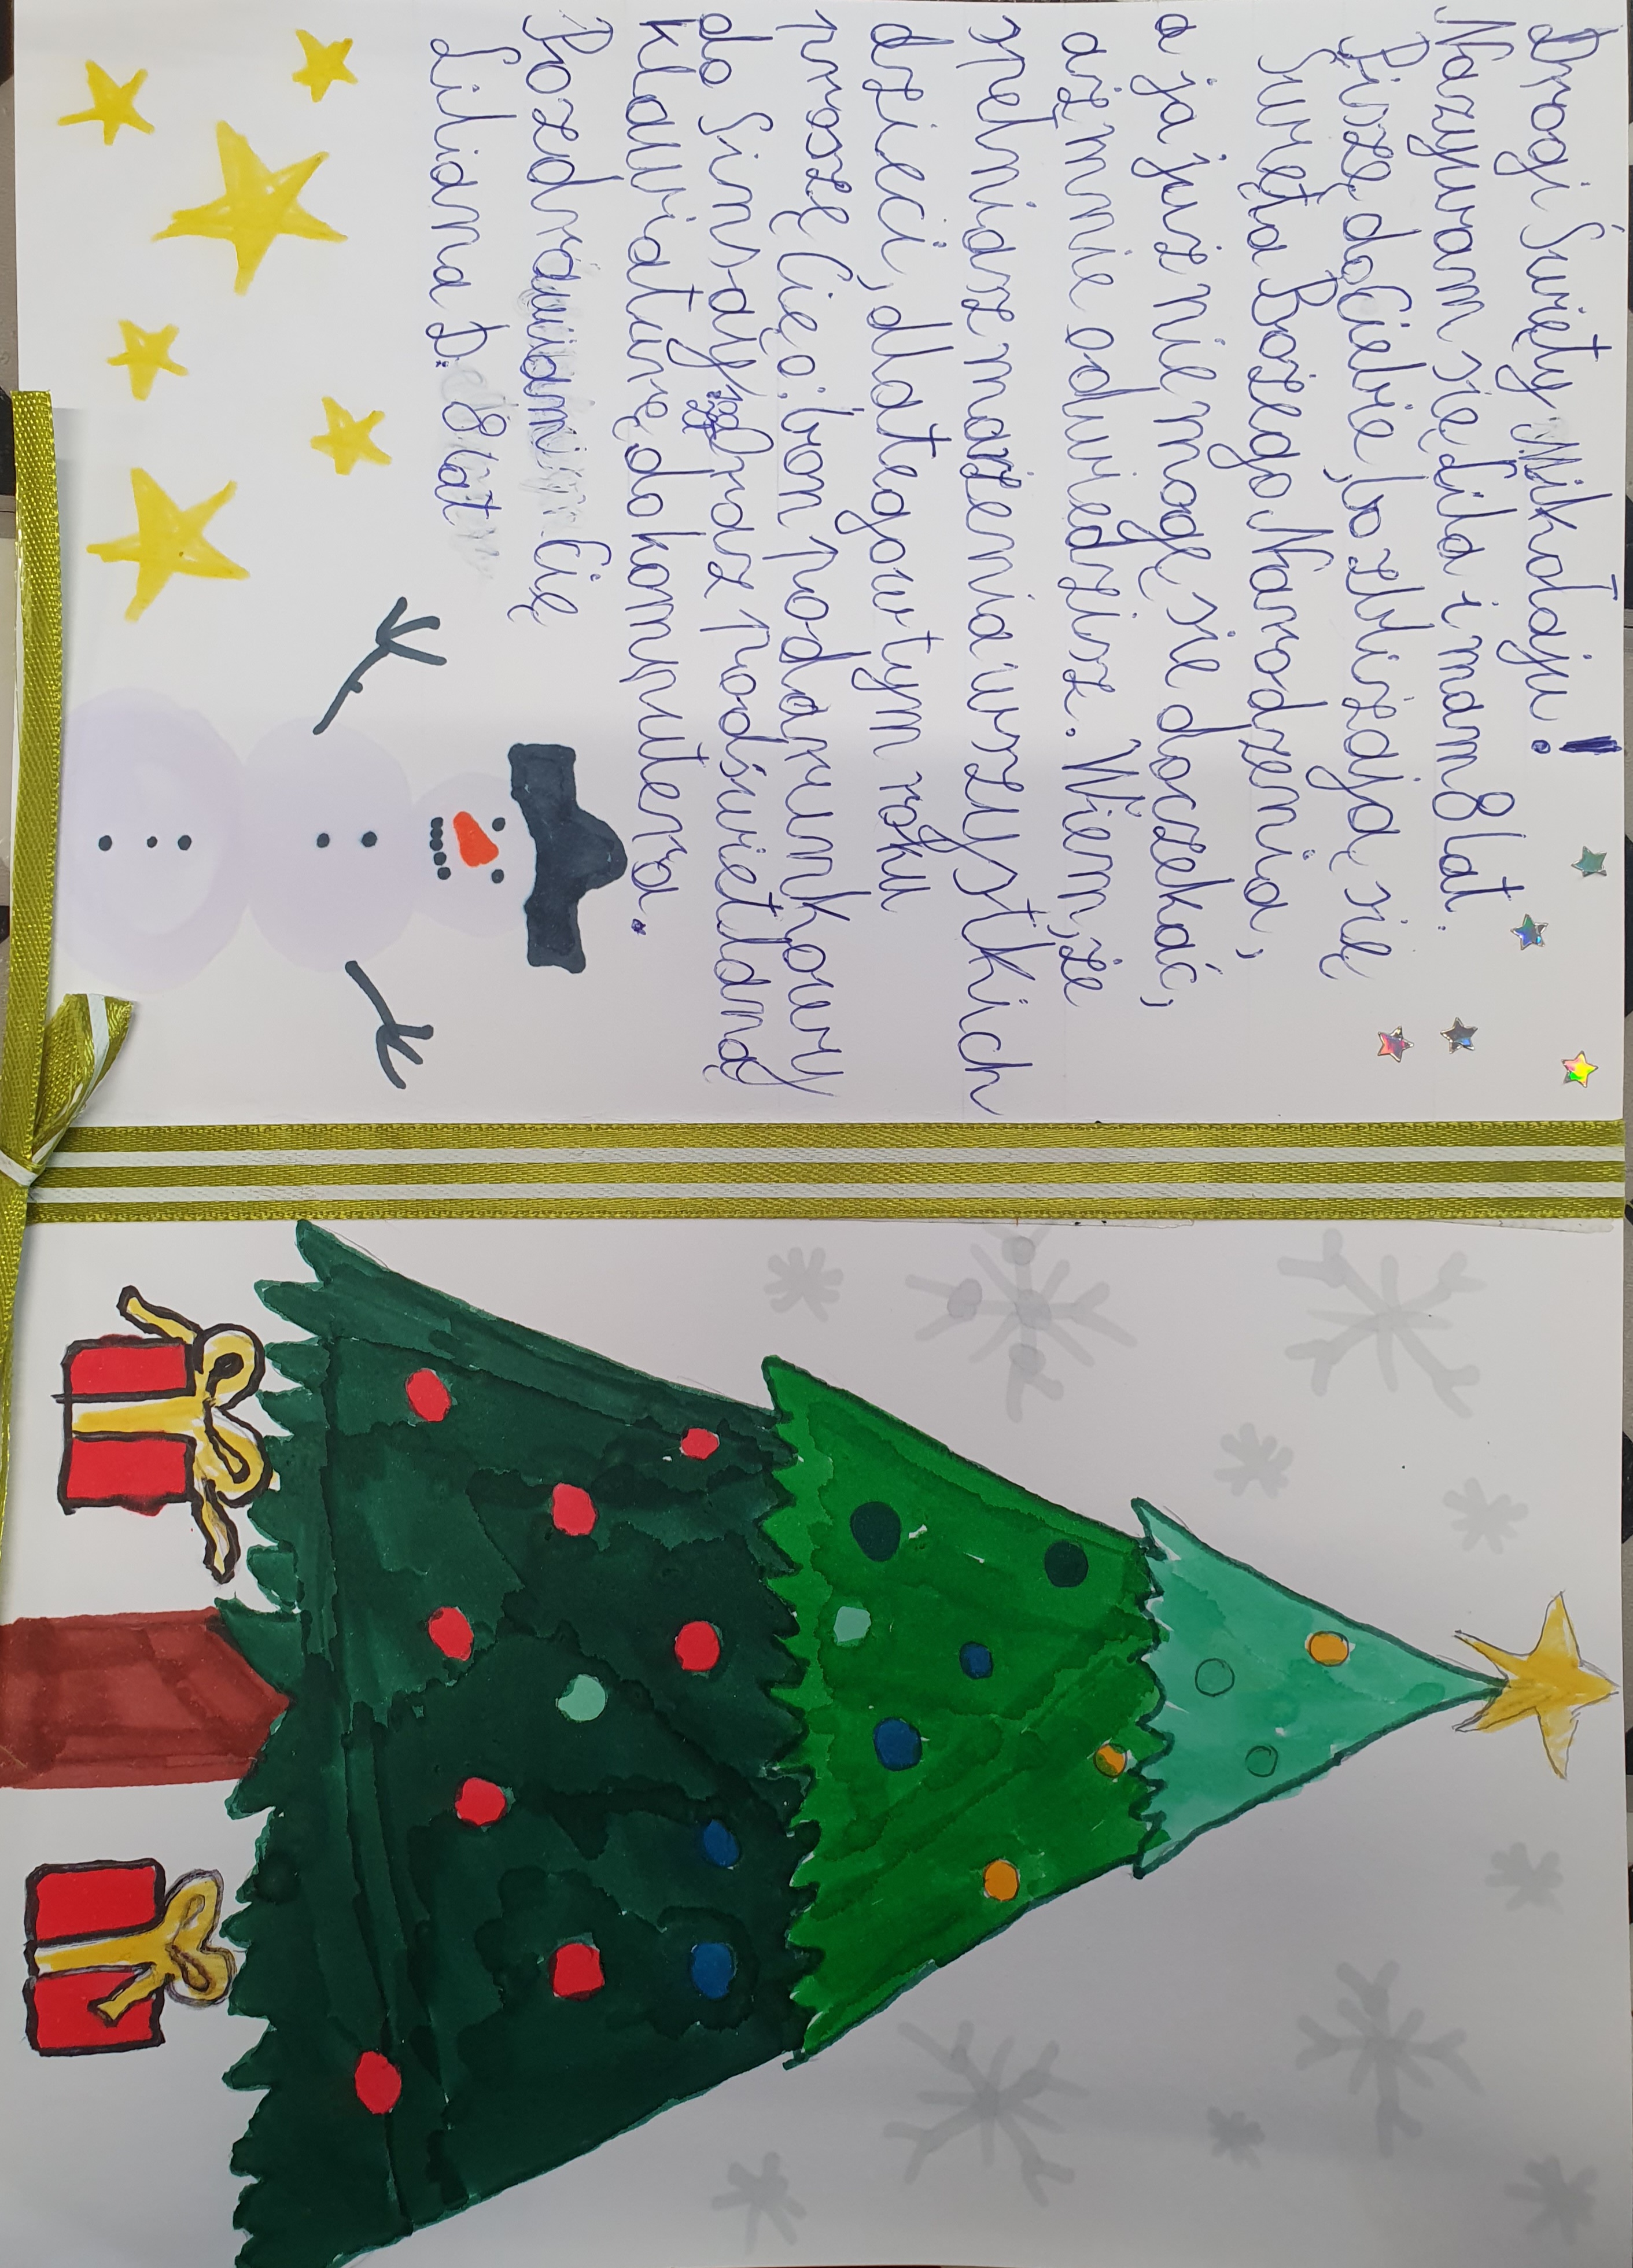 Drogi Święty Mikołaju!
Nazywam się Lila i mam 8 lat.
Piszę do Ciebie, bo zbliżają się
Święta Bożego Narodzenia,
a ja już nie mogę się doczekać,
aż mnie odwiedzisz. Wiem, że
spełniasz marzenia wszystkich
dzieci, dlatego w tym roku
proszę Cię o: bon podarunkowy
do Sinsay oraz podświetlaną
klawiaturę do komputera.
Pozdrawiam Cię
Liliana D. 8 lat